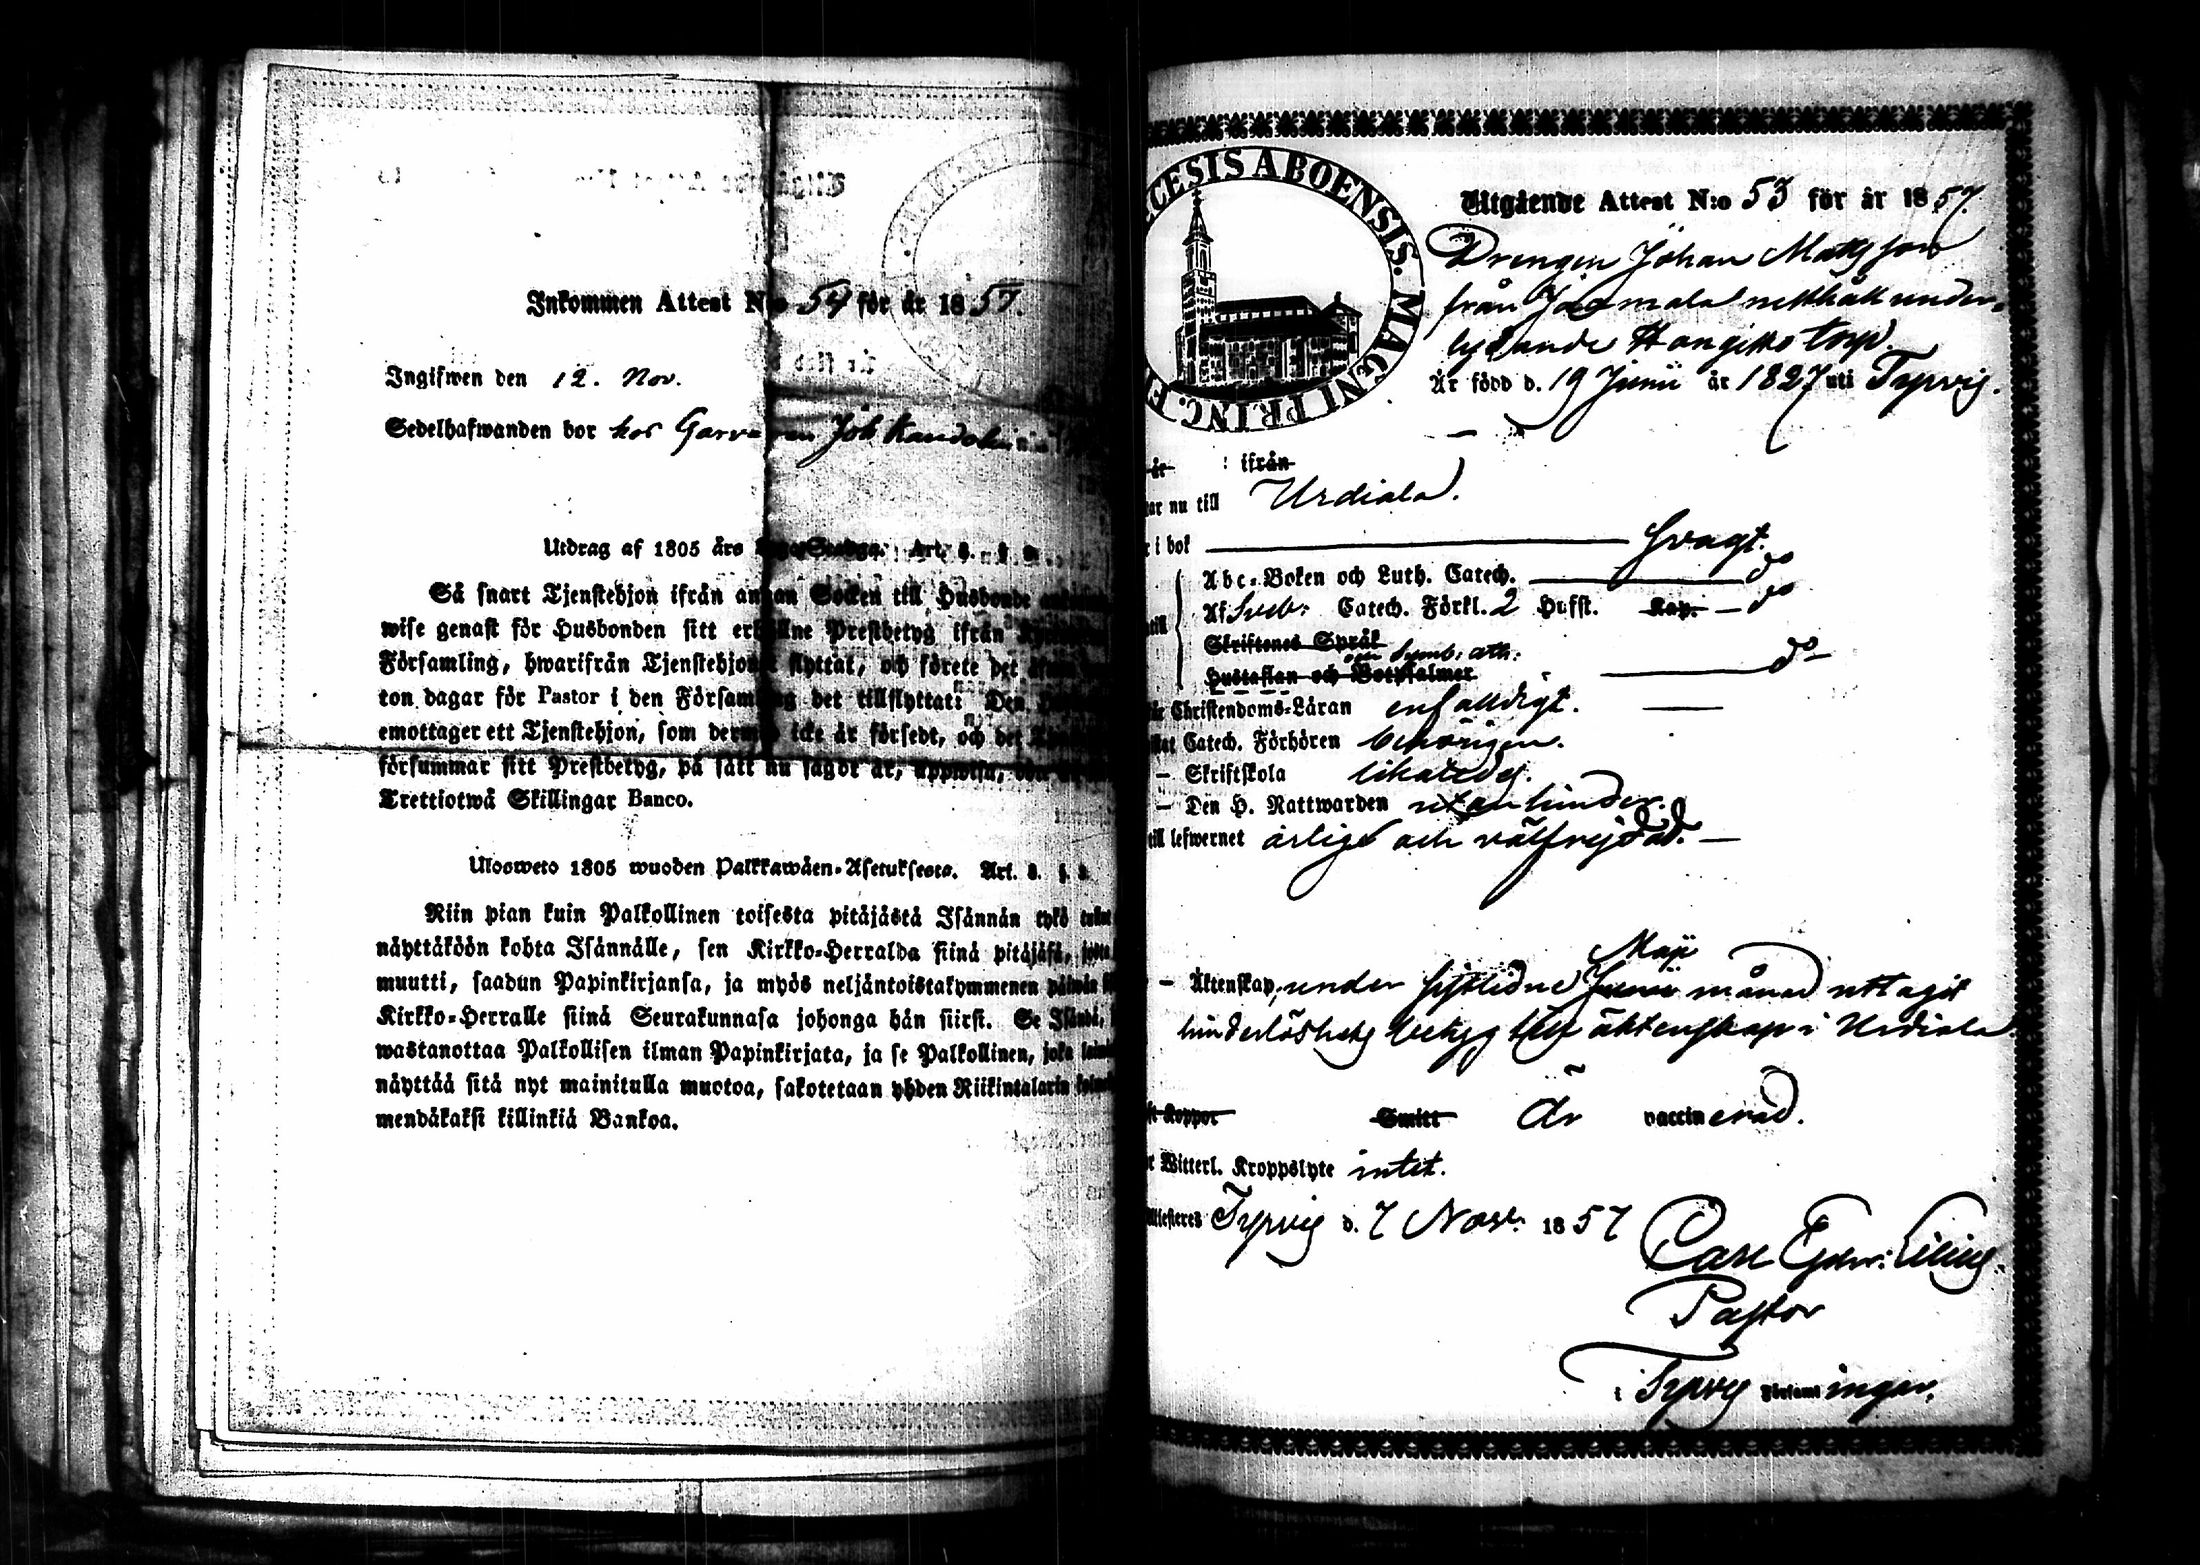 Inkommen Attest N:o 54 för år 1857.
Ingifwen den 12. Nov.
Sedelhafwanden bor hos Garvaren Joh
Utdrag af 1805 års Art. 3.
Så snart Tjenstehjon ifrån annan Socken till Husbonde
wise genast för Husbonden sitt erhållne Prestbetyg ifrån
Församling, hwarifrån Tjenstehjonet flyttat, och förete det
ton dagar för Pastor i den Församling det tillflyttati Den
emottager ett Tjenstehjon, som dermed icke är försedt, och det
försummar sitt Prestbetyg, på sätt nu sagdt är, uppwisa,
Trettiotwå Skillingar Banco.
Uloosweto 1805 wuoden Palkkawäen-Asetuksesta. Art. 3. §.
Niin pian kuin Palkollinen toisesta pitäjästä Isännän tykö
näyttäköön kohta Isännälle, sen Kirkko-Herralda siinä pitäjäsä,
muutti, saadun Papinkirjansa, ja myös neljäntoistakymmenen päiwän
Kirkko-Herralle siinä Seurakunnasa johonga hän siirsi. Se Isändä,
wastanottaa Palkollisen ilman Papinkirjata, ja se Palkollinen, joka
näyttää sitä nyt mainitulla muotoa, sakotetaan yhden Riikintalarin
mendäkaksi killinkiä Bankoa.
CESIS ABOENSIS. MAGNI PRINC. F
Utgående Attest N:o 53 för år 1857.
Drengen Johan Mattsson
från Jaamala rusthåll under-
lydande Hongisto torp.
Är född d. 19 Junii år 1827 uti Tyrvis.
år : ifrån
nu till Urdiala.
i bok svagt.
Abc-Boken och Luth. Catech. do
Af Sveb: Catech. Förkl. 2 Hufst. Kap. do
Skriftenes Språk
Symb: ath:
Hustaflan och Botpsalmer do
Christendoms-Läran enfalldigt.
Catech. Förhören behörigen.
- Skriftskola likaledes.
- Den H. Nattwarden utan hinder.
till lefwernet ärlig och välfrejdad.
Maji
- Äktenskap, under sistledne Junii månad uttagit
hinderlöshets betyg till äktenskap i Urdiala
Koppor Smitt Är vaccinerad.
Witterl. Kroppslyte intet.
Tyrvis d. 7 Nov. 1857
Carl Edv: Liling
Pastor
i Tyrvis Församlingar.